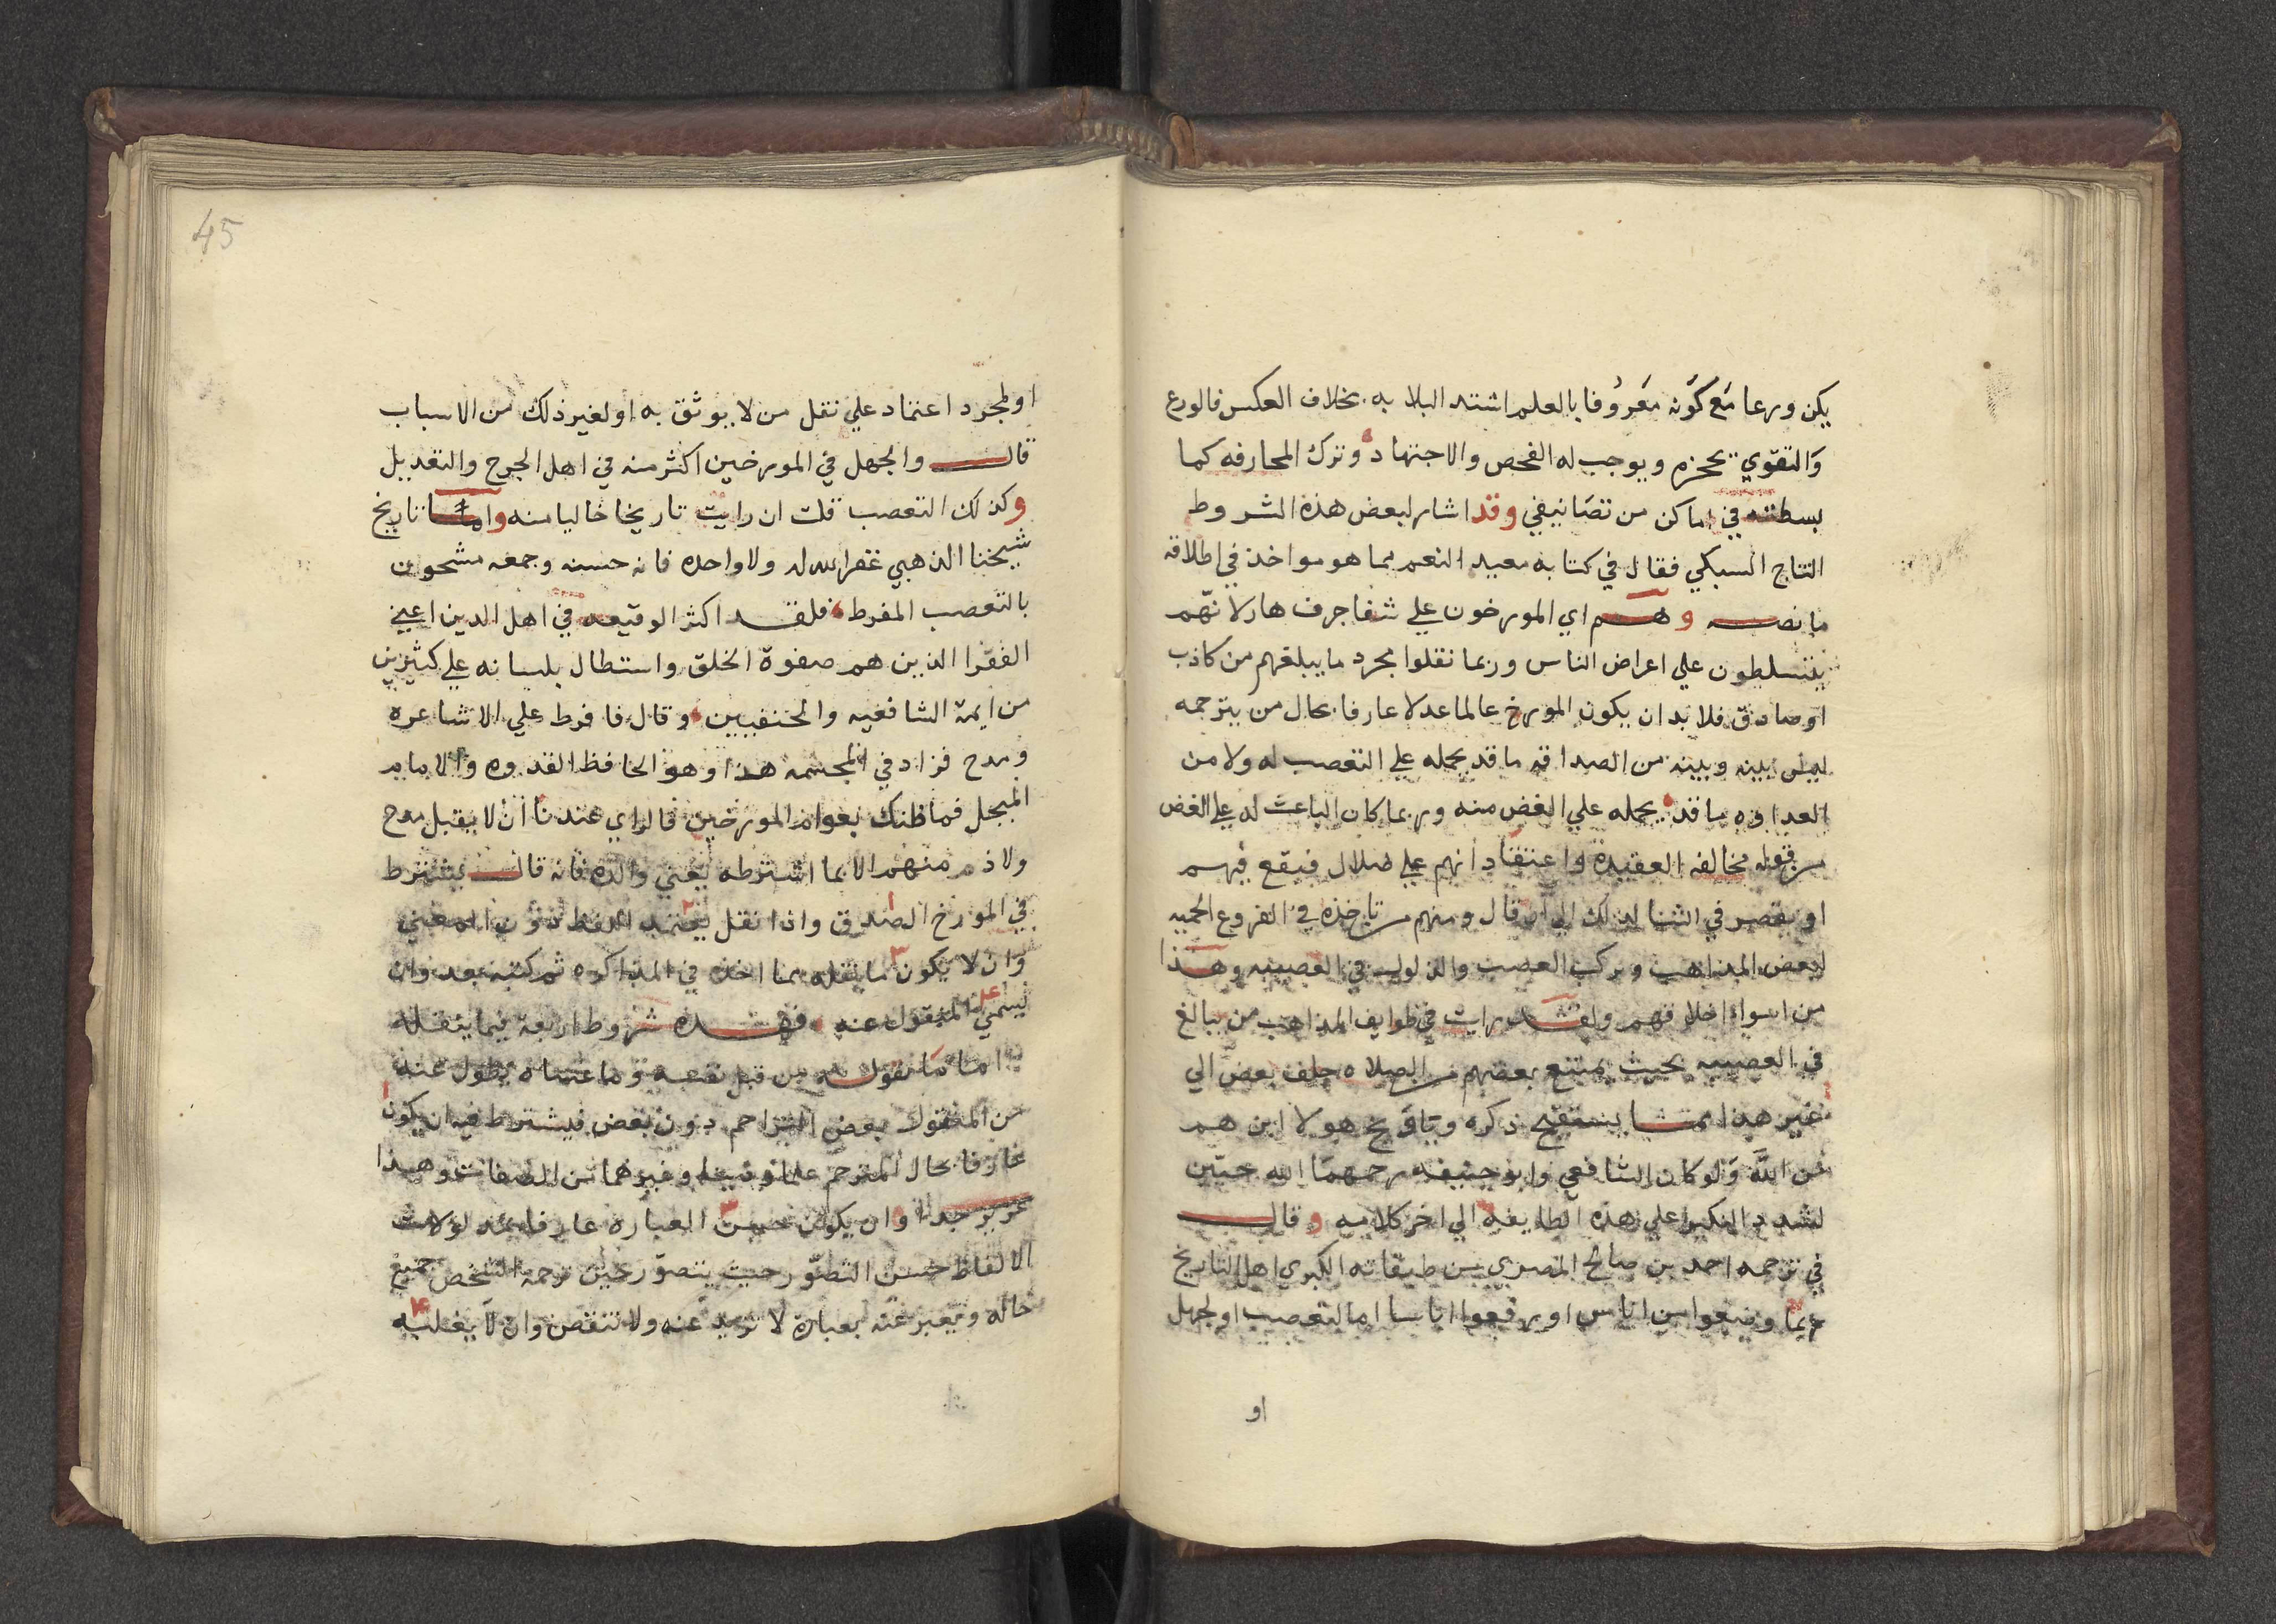 يكن ورعا مَع كَوْنه مَعرُوفا بالعلم اشتد البلا به بخلاف العكس فالورع
وَالتقوي تحجزه ويوجب له الفحص والاجتهاد وترك المجازفه كما
بسطته في اماكن من تصَانيفي وقد اشار لبعض هذه الشروط
التاج السبكي فقال في كتابه معيد النعم بما هو مواخذ في اطلاقه
ما نصه وهم اي المورخون علي شفا جرف هار لانّهم
يتسلطون علي اعراض الناس وربما نقلوا مجرد ما يبلغهم من كاذب
او صادق فلا بد ان يكون المورخ عالما عدلا عارفا بحال من يترجمه
ليس بينه وبينه من الصداقه ما قد يحمله علي التعصب له ولا من
العداوه ما قد يحمله علي الغض منه وربما كان الباعث له علي الغض
من قوم مخالفه العقيدة واعتقاد انهم علي ضلال فيقع فيهم
او يقصر في الثنا لذلك الي ان قال ومنهم من تاخذه في الفروع الحميه
لبعض المذاهب ويركب الصعب والذلول في العصبيه وهذا
من اسوا اخلاقهم ولقد رايت في طوايف المذاهب من يبالغ
في العصبيه بحيث يمتنع بعضهم من الصلاه خلف بعض الي
غير هذا مما يستقبح ذكره وياويح هولا اين هم
من الله وَلو كان الشافعي وابو حنيفه رحمهمَا الله حيّين
لشدد النكير علي هذه الطايفه الي اخر كلامه وقال
في ترجمه احمد بن صالح المصري من طبقاته الكبري اهل التاريخ
ربما وضعوا من اناس او رفعوا اناسا اما لتعصب او لجهل
او
45
او لمجرد اعتماد علي نقل من لا يوثق به او لغير ذلك من الاسباب
قال والجهل في المورخين اكثر منه في اهل الجرح والتعديل
وكذلك التعصب قلت ان رايت تاريخا خاليا منه واما تاريخ
شيخنا الذهبي غفر الله له ولا واخذه فانه حسنه وجمعه مشحون
بالتعصب المفرط فلقد اكثر الوقيعه في اهل الدين اعيني
الفقرا الذين هم صفوة الخلق واستطال بلسانه علي كثيرين
من ايمة الشافعيه والحنفيين وقال فافرط علي الاشاعره
ومدح فزاد في المجسمه هذا وهو الحافظ القدوه والامام
المبجل فما ظنك بعوام المورخين فالراي عندنا ان لا يقبل مدح
ولا ذم منهم الا بما اشترطه يعني والده فانه قال يشترط
في المورخ الصدق واذا نقل يعتمد اللفظ دون المعني
وان لا يكون ما نقله مما اخذه في المذاكره ثم كتبه بعد وان
يسمي المنقول عنه فهذه شروط اربعة فيما ينقله
اما مَا يقوله من قبل نفسه وما عساه يطول عنه
من المنقول بعض التراجم دون بعض فيشترط فيه ان يكون
عارفا بحال المترجم علما ودينا وغيرهما من الصفات وهذا
عزيز جدا وان يكون حسن العبارة عارفا بمدلولات
الالفاظ حسن التصوّر حيث يتصوّر حين ترجمه الشخص جميع
حاله ويعبر عنه بعبارة لا تزيد عنه ولا تنقص وان لا يغلبه